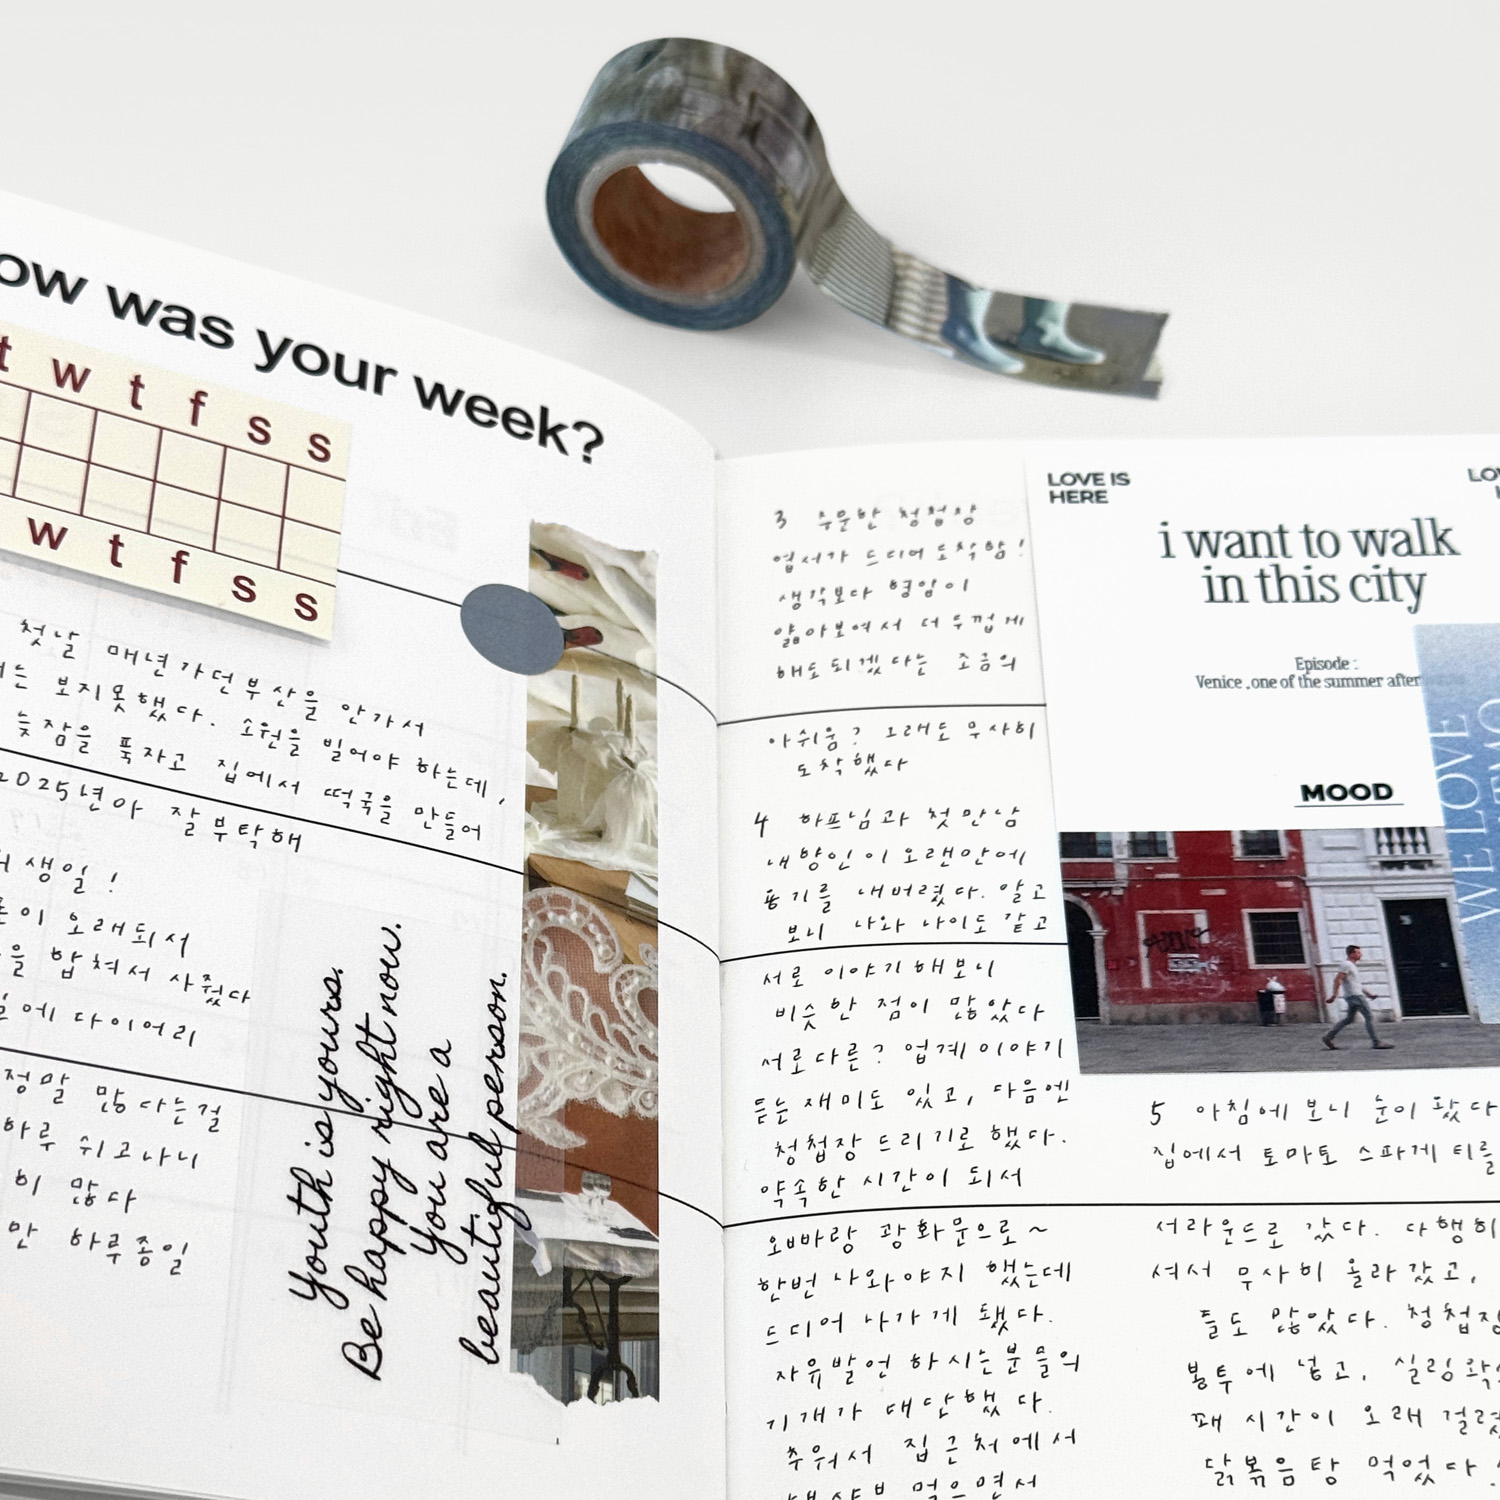 ow was your week?
t w t f s s
w t f s s
첫날 매년 가던 부산을 안가서
는 보지못했다. 소원을 빌어야 하는데,
늦잠을 푹자고 집에서 떡국을 만들어
2025년아 잘 부탁해
생일!
이 오래되서
을 합쳐서 사줬다
에 다이어리
정말 많다는걸
하루 쉬고나니
히 많다
만 하루종일
Youth is yours.
Be happy right now.
You are a
beautiful person.
3 주문한 청첩장
엽서가 드디어 도착함!
생각보다 형압이
얇아보여서 더 두껍게
해도 되겠다는 조금의
아쉬움? 그래도 무사히
도착했다
4 하프님과 첫 만남
내향인이 오랜만에
용기를 내버렸다. 알고
보니 나와 나이도 같고
서로 이야기해보니
비슷한 점이 많았다
서로다른? 업계이야기
듣는 재미도 있고, 다음엔
청첩장 드리기로 했다.
약속한 시간이 되서
오빠랑 광화문으로~
한번 나와야지 했는데
드디어 나가게 됐다.
자유발언 하시는분들의
기개가 대단했다.
추워서 집근처에서
먹으면서
LOVE IS
HERE
i want to walk
in this city
Episode :
Venice ,one of the summer after
MOOD
WE LOVE
5 아침에 보니 눈이 왔다
집에서 토마토 스파게티를
서라운드로 갔다. 다행히
셔서 무사히 올라갔고,
들도 많았다.
봉투에 넣고, 실링왁스
꽤 시간이 오래 걸렸
닭볶음탕 먹었다